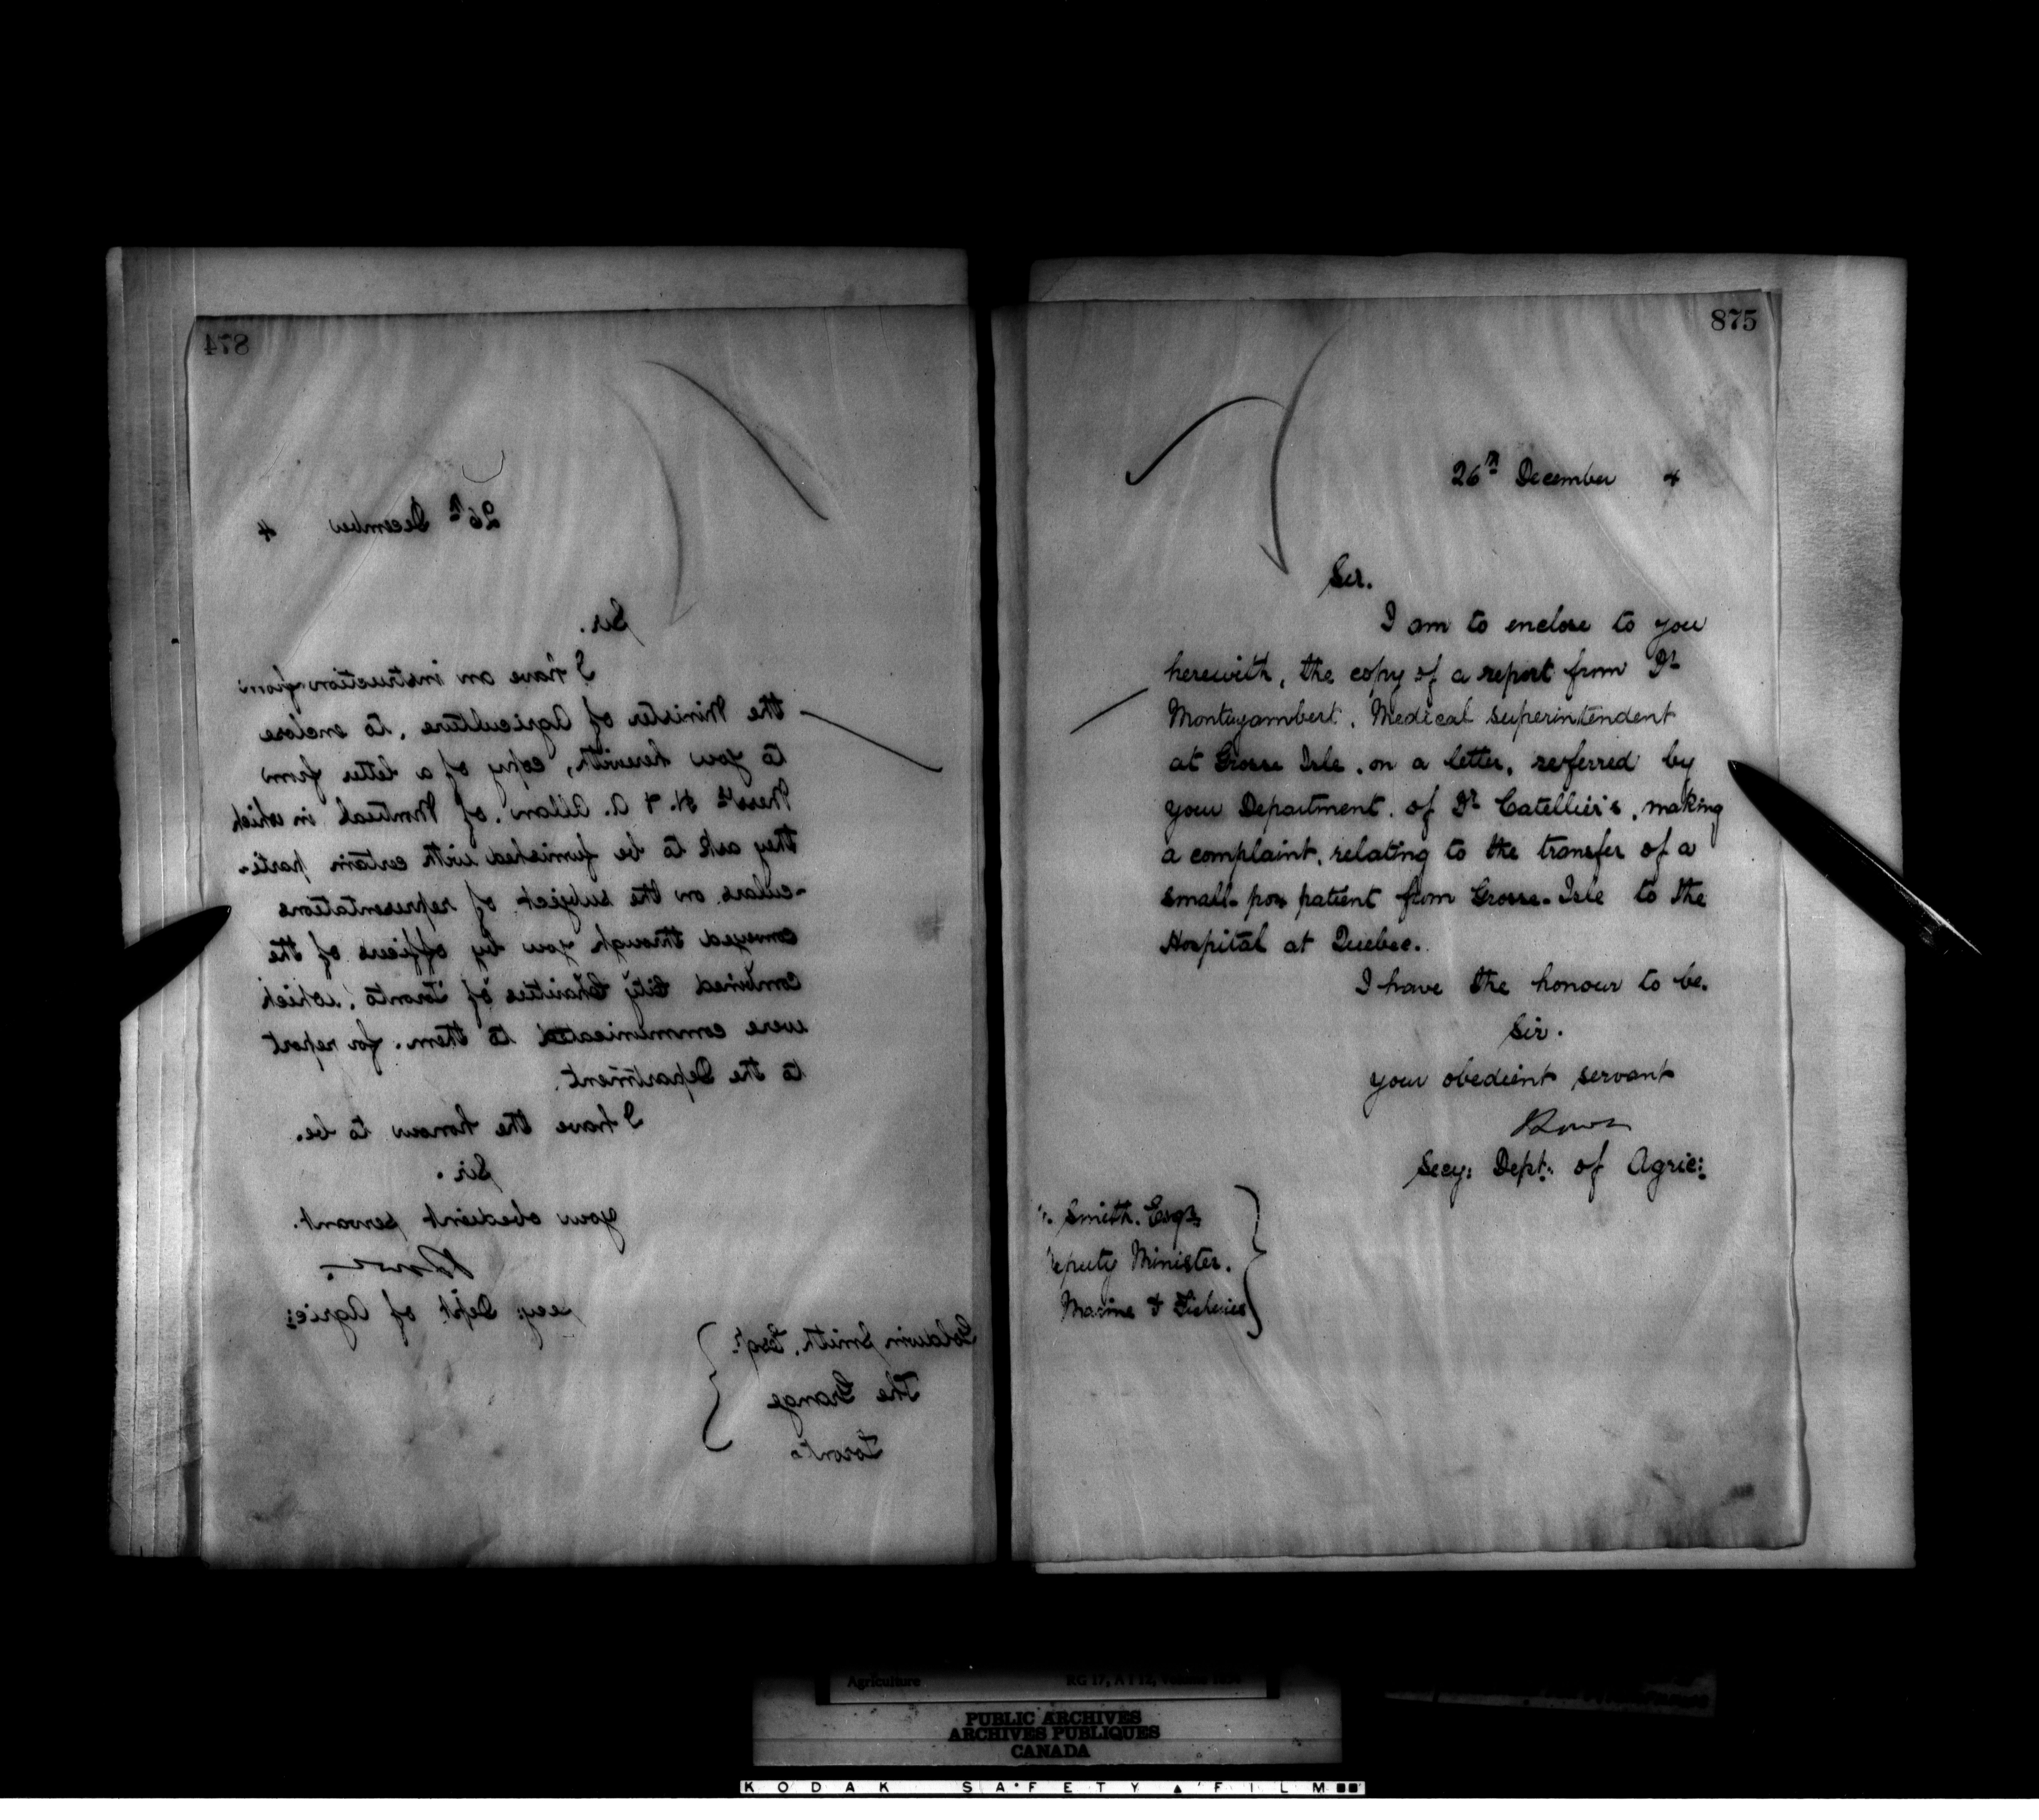 874
26th December 4
Sir.
I have an instruction from
the Minister of Agriculture, to enclose
to you herewith, copy of a letter from
Messrs H. & A. Allan, of Montreal in which
they ask to be furnished with certain parti-
-culars on the subject of representations
conveyed through you by officers of the
combined City Charities of Toronto, which
were communicated to them. for report
to the Department.
I have the honour to be.
Sir.
your obedient servant.
secy: Dept of Agric:
Goldwin Smith, Esqr.
The Grange
Toronto
875
26th December 4
Sir.
I am to enclose to you
herewith, the copy of a report from Dr
Montezambert, Medical superintendent
at Grosse Isle, on a letter, referred by
your Department, of Dr Catellier's, making
a complaint, relating to the transfer of a
small-pox patient from Grosse-Isle to the
Hospital at Quebec.
I have the honour to be.
Sir.
your obedient servant
Secy: Dept: of Agric:
Smith. Esqr.
eputy Minister.
Marine & Fisheries
Agriculture RG 17, A I
PUBLIC ARCHIVES
ARCHIVES PUBLIQUES
CANADA
KODAK SAFETY FILM